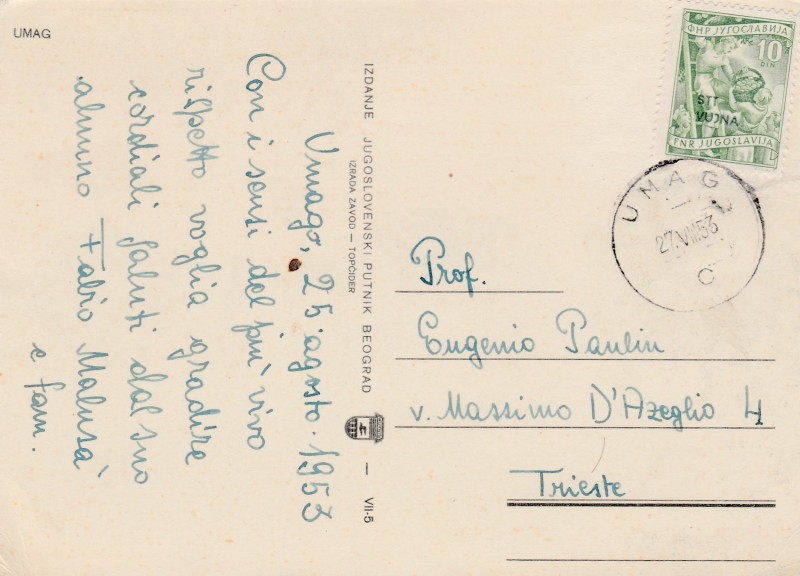 UMAG
Umago, 25 agosto. 1953
Con i sensi del più vivo
rispetto voglia gradire
cordiali saluti dal suo
alunno Fabio Malusà
e fam.
IZDANJE JUGOSLOVENSKI PUTNIK BEOGRAD — VII-5
IZRADA ZAVOD — TOPČIDER
ФНР ЈУГОСЛАВИЈА
10
DIN
STT
VUJNA
FNR JUGOSLAVIJA
UMAG
27.VIII.53
C
Prof.
Eugenio Paulin
v. Massimo D'Azeglio 4
Trieste